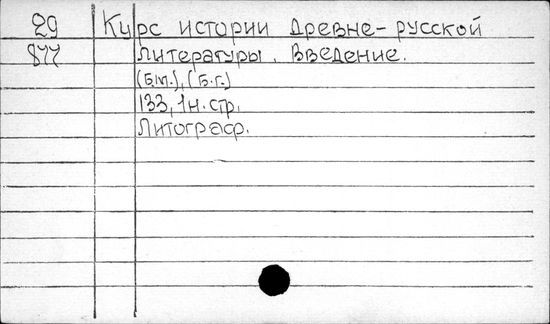 29 Курс истории древне-русской
877 литературы. Введение.
(Б.м.), (Б.г.)
133, 1н. стр.
Литограф.